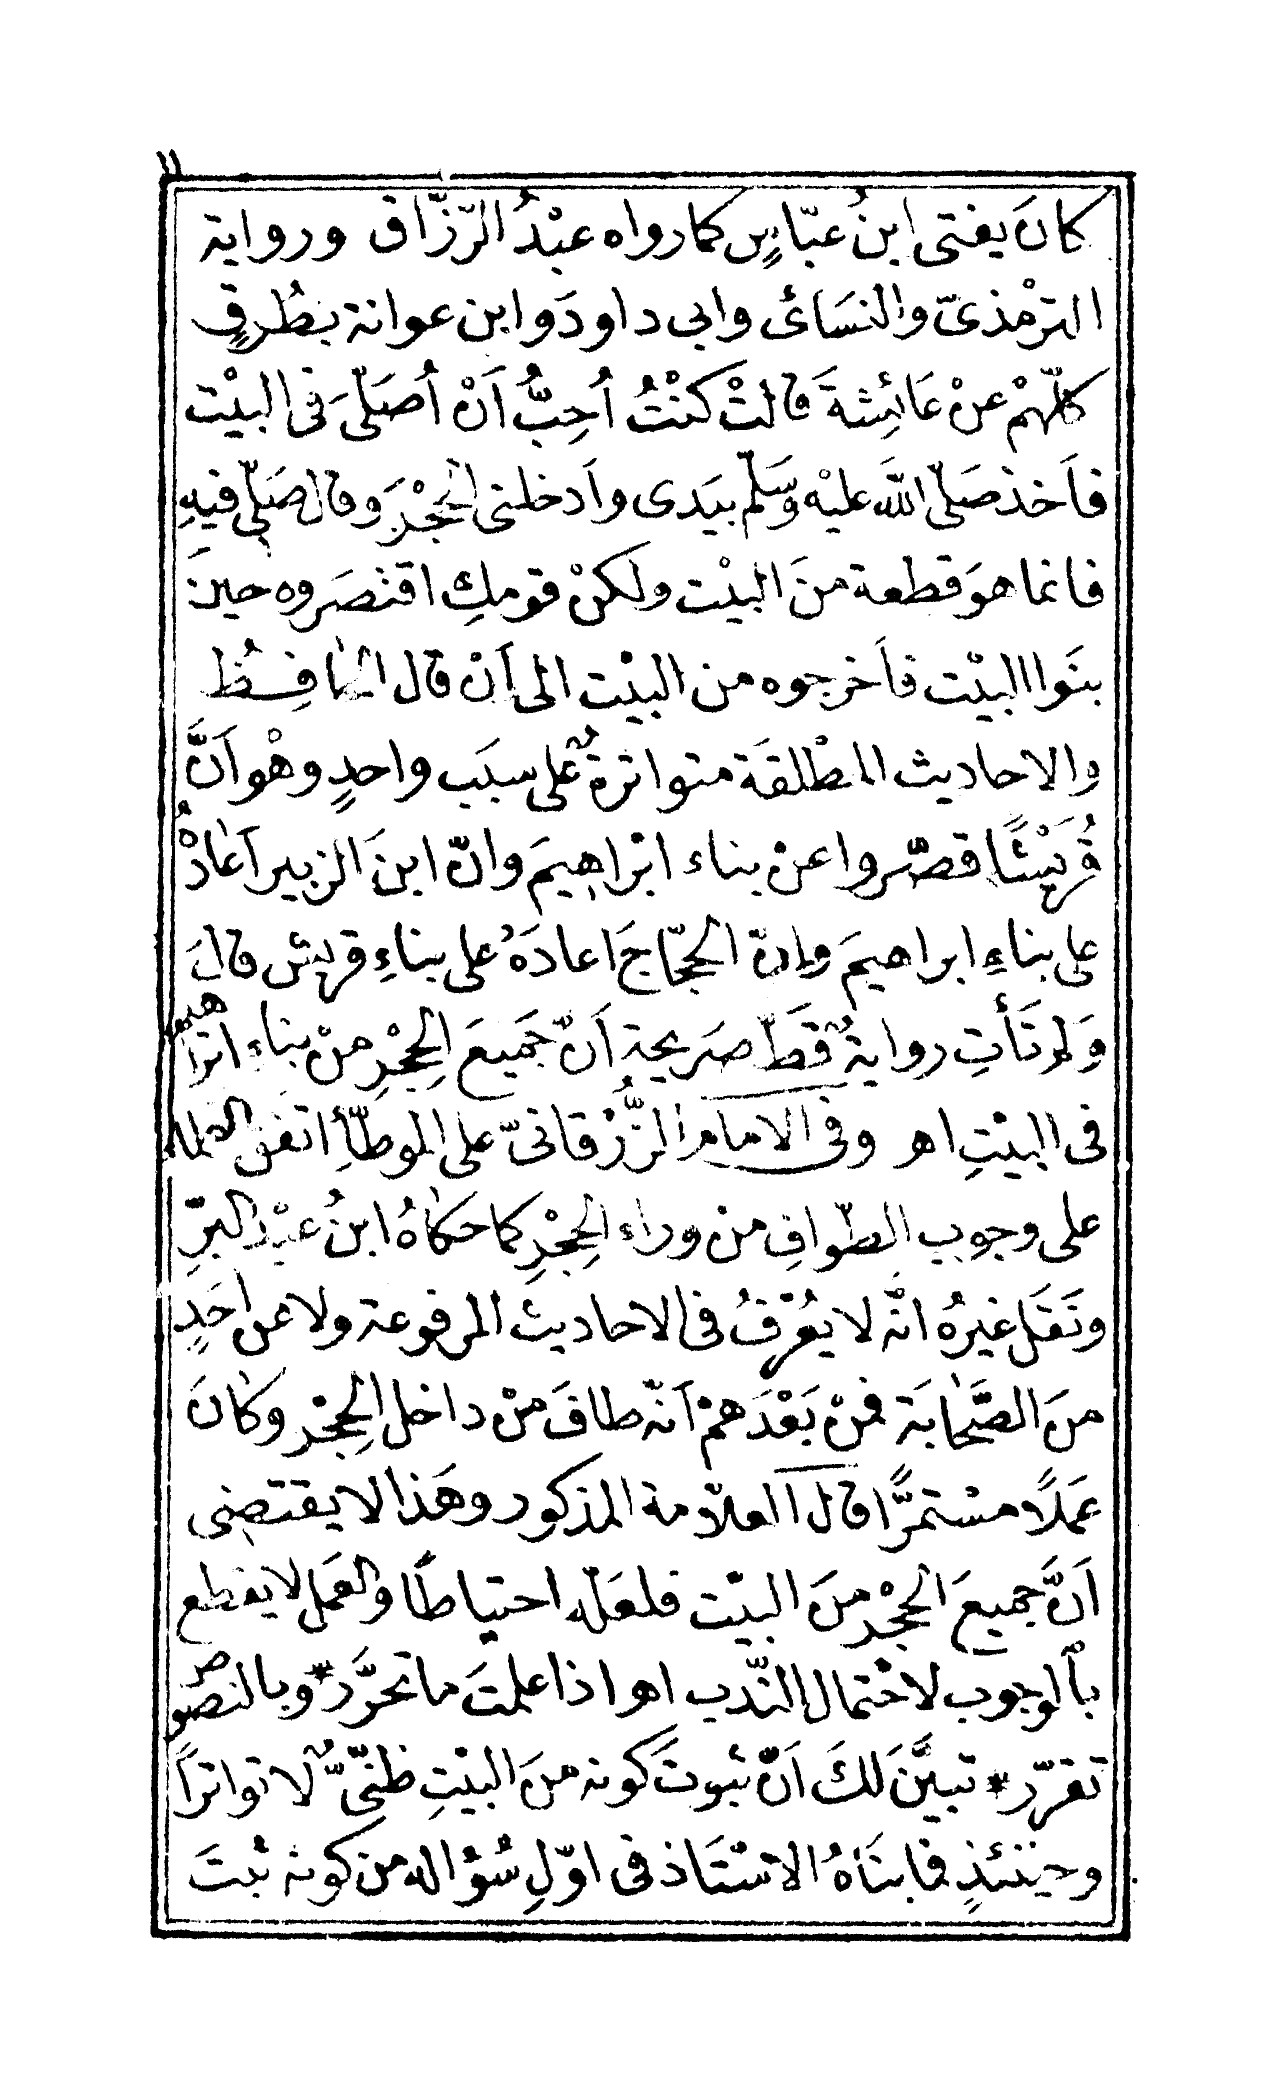 ١١
كانَ يفتى ابنُ عبّاسٍ كما رواه عبْدُ الرّزّاق ورواية
الترْمذىّ والنسَائى وابى داود وابن عوانة بطُرقٍ
كلّهمْ عنْ عَائِشةَ قالتْ كنْتُ اُحِبُّ اَنْ اُصَلّىَ فى البيْت
فاَخذ صَلّى اللّٰه عليْه وَسَلّم بيَدى واَدخلنى الحِجْرَ وقال صَلّى فيهِ
فانما هوَ قطعة منَ البيْت ولكنْ قومكِ اقتصَروه حينَ
بنَوا البيْت فاَخرجوه من البيْت الى اَنْ قال الحَافِظُ
والاحاديث المطْلقَة متواترةٌ على سبَب واحدٍ وهْو اَنَّ
قُرَيْشًا قصّروا عنْ بناء ابْراهيمَ وانّ ابنَ الزبير اَعَادهُ
على بناءِ ابراهيمَ وانّ الحجّاجَ اعادَهُ على بناءِ قريش قالَ
وَلم تَأتِ روايةٌ قَطّ صَريحة اَنّ جَميعَ الحِجْرِ منْ بناء ابْراهيم
فى البيْتِ اهـ وفى الامام الزُّرْقانىّ على الموطّأِ اتفق العلماء
على وجوب الطّوافِ من وراء الحِجْرِ كما حكاهُ ابنُ عبْد البرِّ
ونَقَل غيرُهُ انّه لا يُعْرَفُ فى الاحاديث المرفوعة ولا عن احَدٍ
منَ الصَّحٰابَة فمنْ بَعْدَهمْ اَنّه طافَ منْ داخل الحِجْرِ وكانَ
عَمَلًا مسْتمرًّا قال العلّامة المذكور وهَذا لا يقتضِى
اَنَّ جميعَ الحِجْرِ منَ البيْت فلعَلّه احتياطًا والعَمل لا يقطع
بالوجوب لاحْتمال النّدب اهـ اذا علمتَ ما تحرَّر * وبالنصوص
تقرّر * تبيَّنَ لكَ اَنّ ثبوتَ كونه منَ البيْتِ ظنّىٌّ لا تواتراً
وحينئذٍ فما بنَاهُ الاسْتَاذ فى اوّلِ سُؤاله من كونه ثبتَ